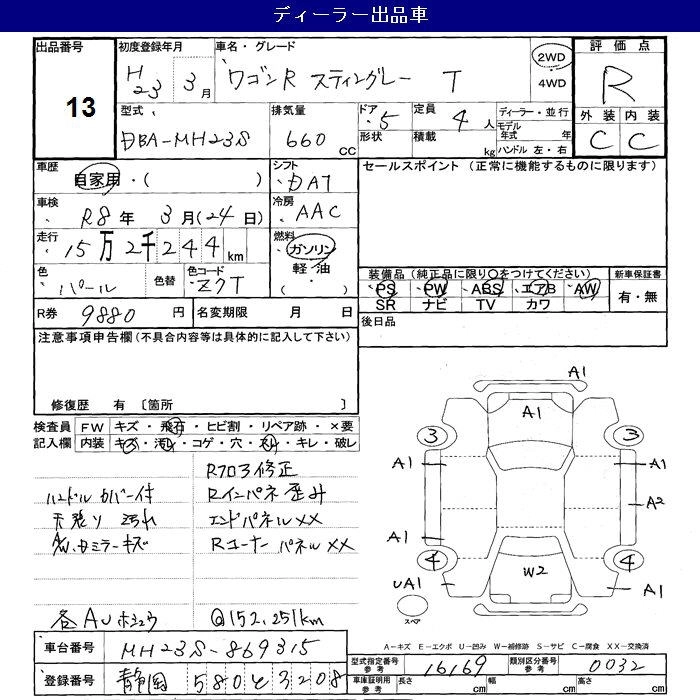 ディーラー出品車
出品番号 13
初度登録年月 H23 3月
車名・グレード ワゴンR スティングレー T
2WD ・ 4WD
評価点 R
外装 C 内装 C
型式 DBA-MH23S
排気量 660 CC
ドア 5 形状
定員 4 人 積載 kg
ディーラー・並行
モデル年式 年
ハンドル 左・右
車歴 自家用・( )
シフト DAT
セールスポイント (正常に機能するものに限ります)
車検 R8年 3月(24日)
冷房 AAC
走行 15万2千244km
燃料 ガソリン 軽・油 ( )
色 パール 色替
色コード Z7T
装備品 (純正品に限り○をつけてください)
PS PW ABS エアB AW
SR ナビ TV カワ
新車保証書 有・無
R券 9880 円
名変期限 月 日
後日品
注意事項申告欄 (不具合内容等は具体的に記入して下さい)
修復歴 有 〔箇所 〕
検査員記入欄
FW キズ・飛石・ヒビ割・リペア跡・×要
内装 キズ・汚れ・コゲ・穴・スレ・キレ・破レ
Rフロア修正
ハンドルカバー付 Rインパネ歪み
天張り汚れ エンドパネルXX
Rコーナーパネル XX
@152,251km
車台番号 MH23S-869315
登録番号 静岡 580 と 3208
A1
A1
3 3
A1 A1
A2
A1 A1
4 4
UA1 W2 A1
スペア
A-キズ E-エクボ U-凹み W-補修跡 S-サビ C-腐食 XX-交換済
型式指定番号 参考 16169
類別区分番号 参考 0032
車庫証明用 参考 長さ cm 幅 cm 高さ cm